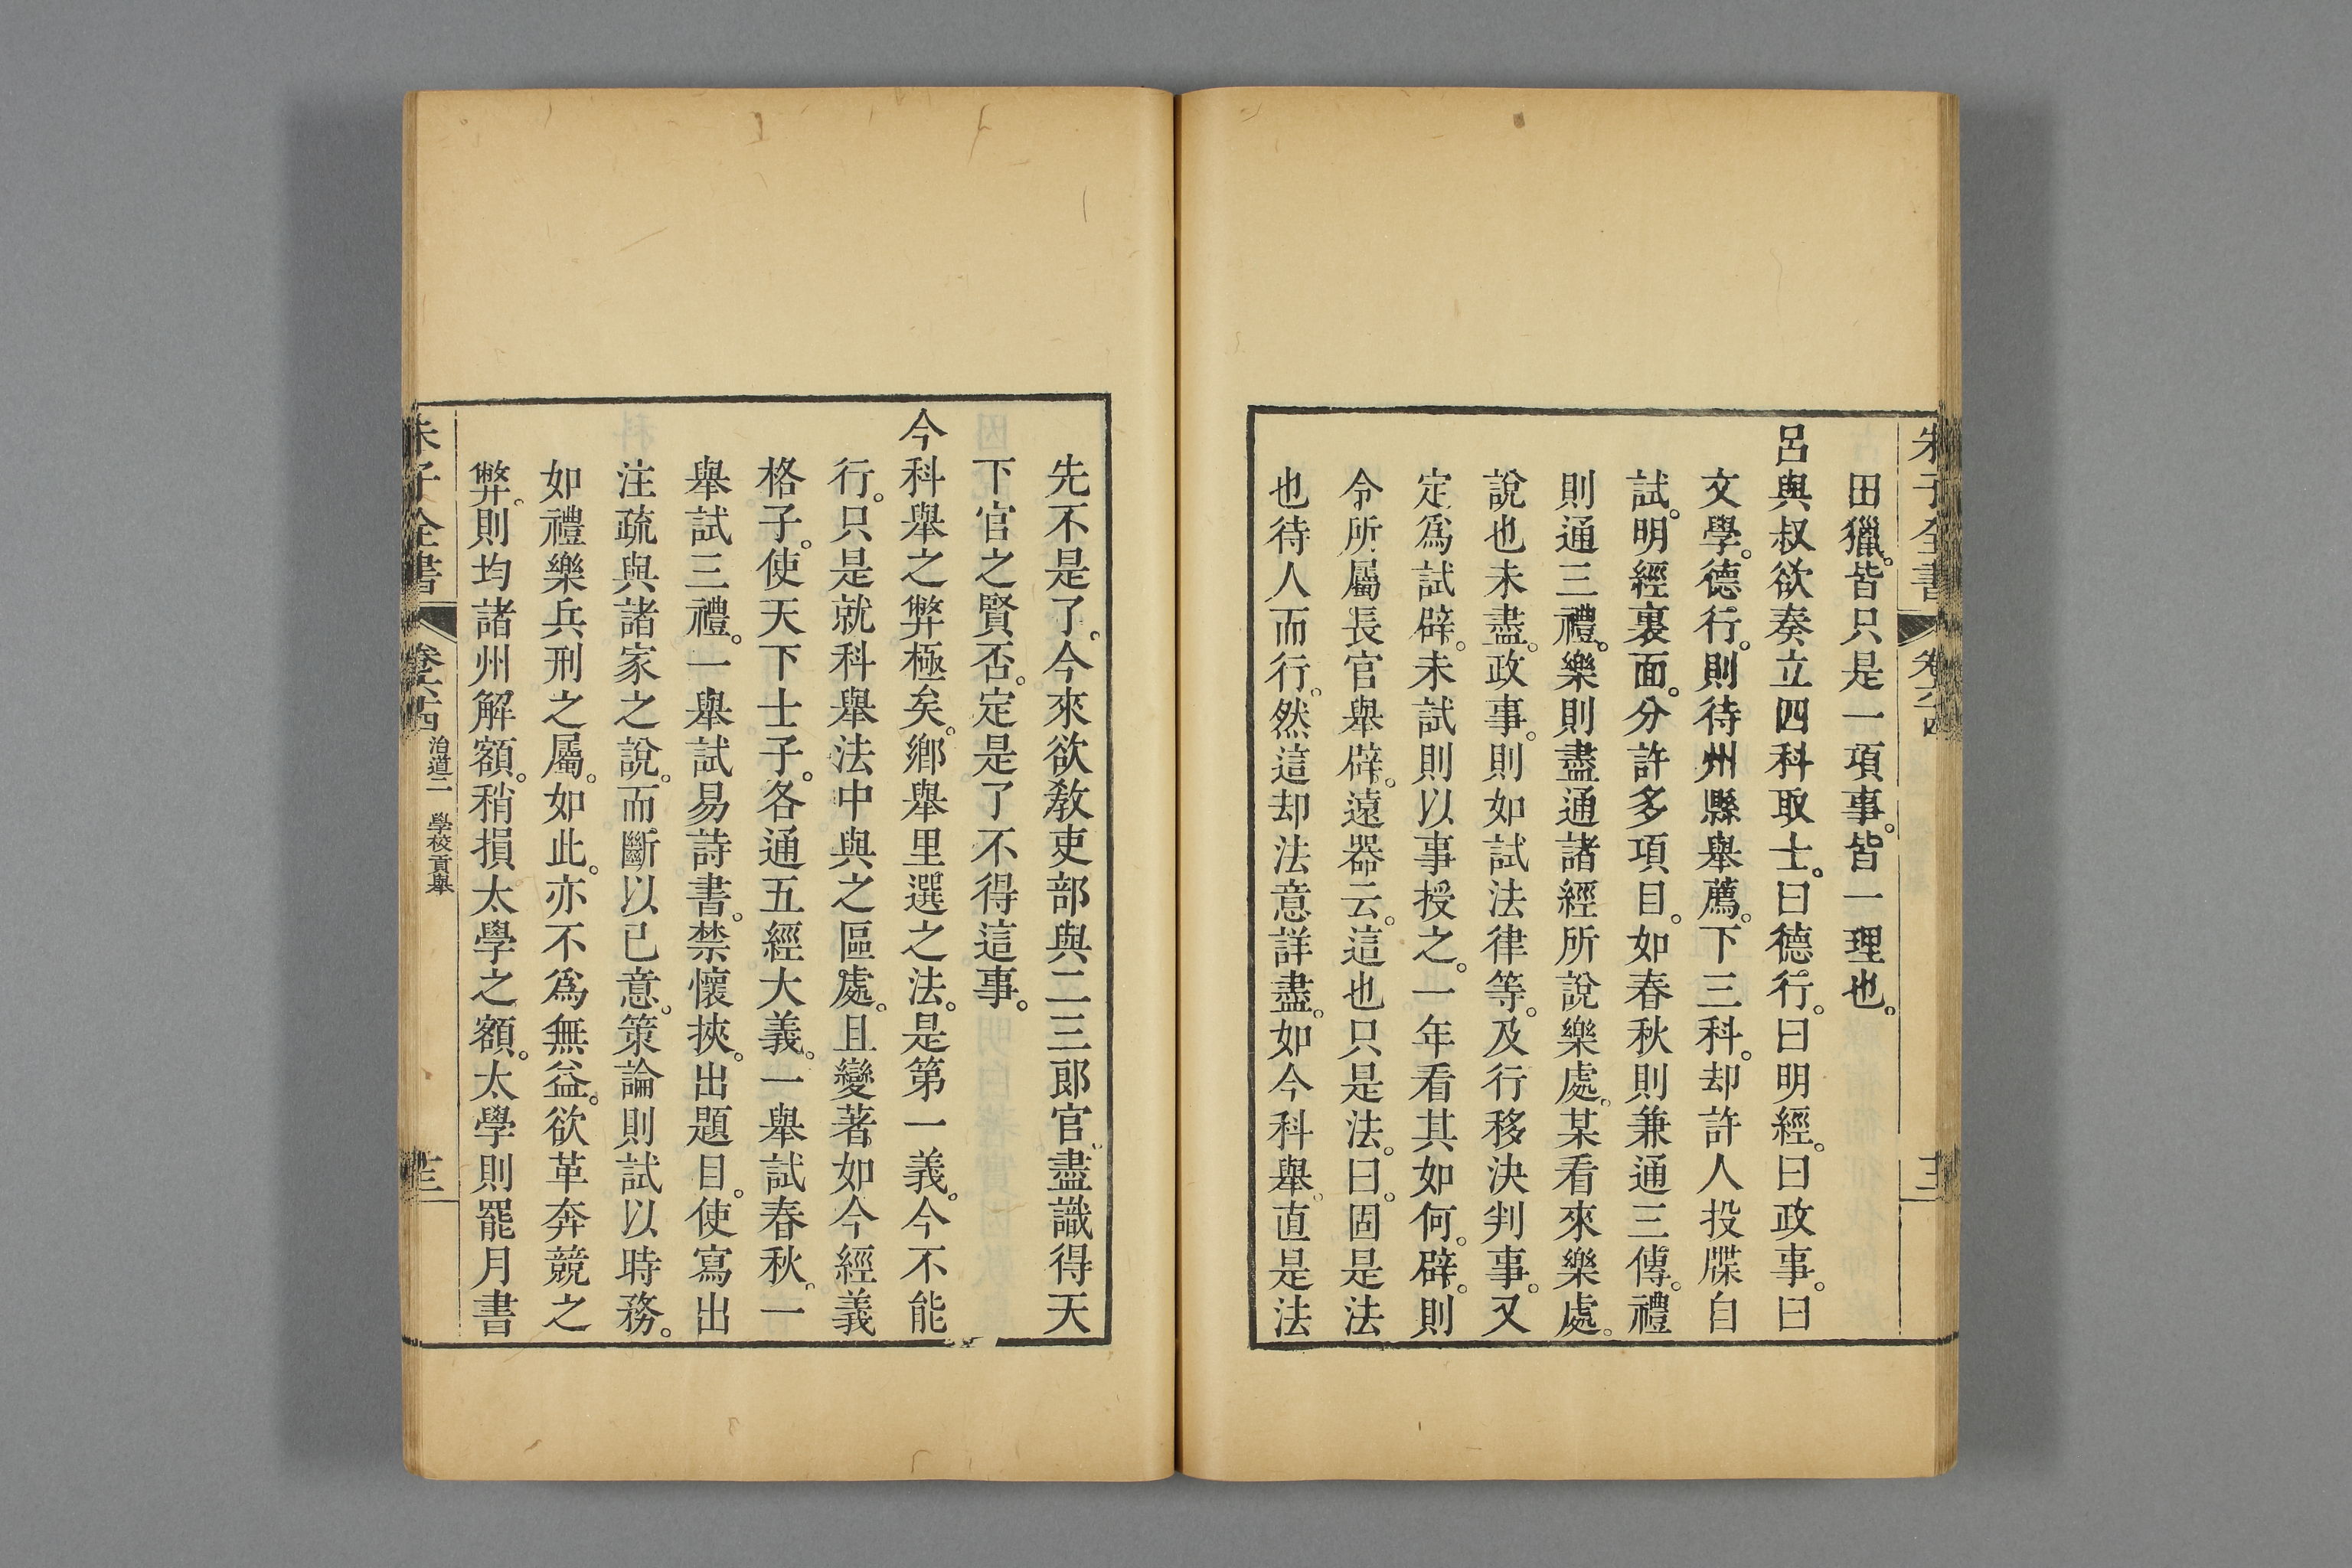 朱子全書 卷六十四 十二
田獵。皆只是一項事。皆一理也。
呂與叔欲奏立四科取士。曰德行。曰明經。曰政事。曰
文學。德行。則待州縣舉薦。下三科。却許人投牒自
試。明經裏面。分許多項目。如春秋則兼通三傳。禮
則通三禮。樂則盡通諸經所說樂處。某看來樂處。
說也未盡。政事。則如試法律等。及行移決判事。又
定爲試辟。未試則以事授之。一年看其如何。辟。則
令所屬長官舉辟。遠器云。這也只是法。曰。固是法
也待人而行。然這却法意詳盡。如今科舉。直是法
先不是了。今來欲敎吏部與二三郎官。盡識得天
下官之賢否。定是了不得這事。
今科舉之弊極矣。鄉舉里選之法。是第一義。今不能
行。只是就科舉法中與之區處。且變著如今經義
格子。使天下士子。各通五經大義。一舉試春秋。一
舉試三禮。一舉試易詩書。禁懷挾。出題目。使寫出
注疏與諸家之說。而斷以已意。策論則試以時務。
如禮樂兵刑之屬。如此。亦不爲無益。欲革奔競之
弊。則均諸州解額。稍損太學之額。太學則罷月書
朱子全書 卷六十四 治道二 學校貢舉